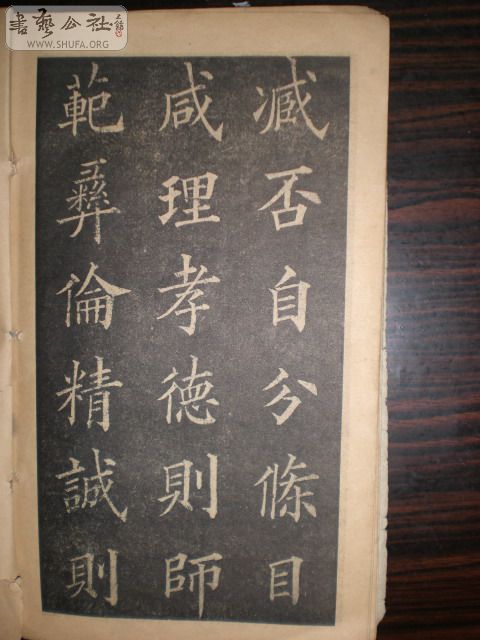 書藝公社
WWW.SHUFA.ORG
臧否自分條目
咸理孝德則師
範彝倫精誠則